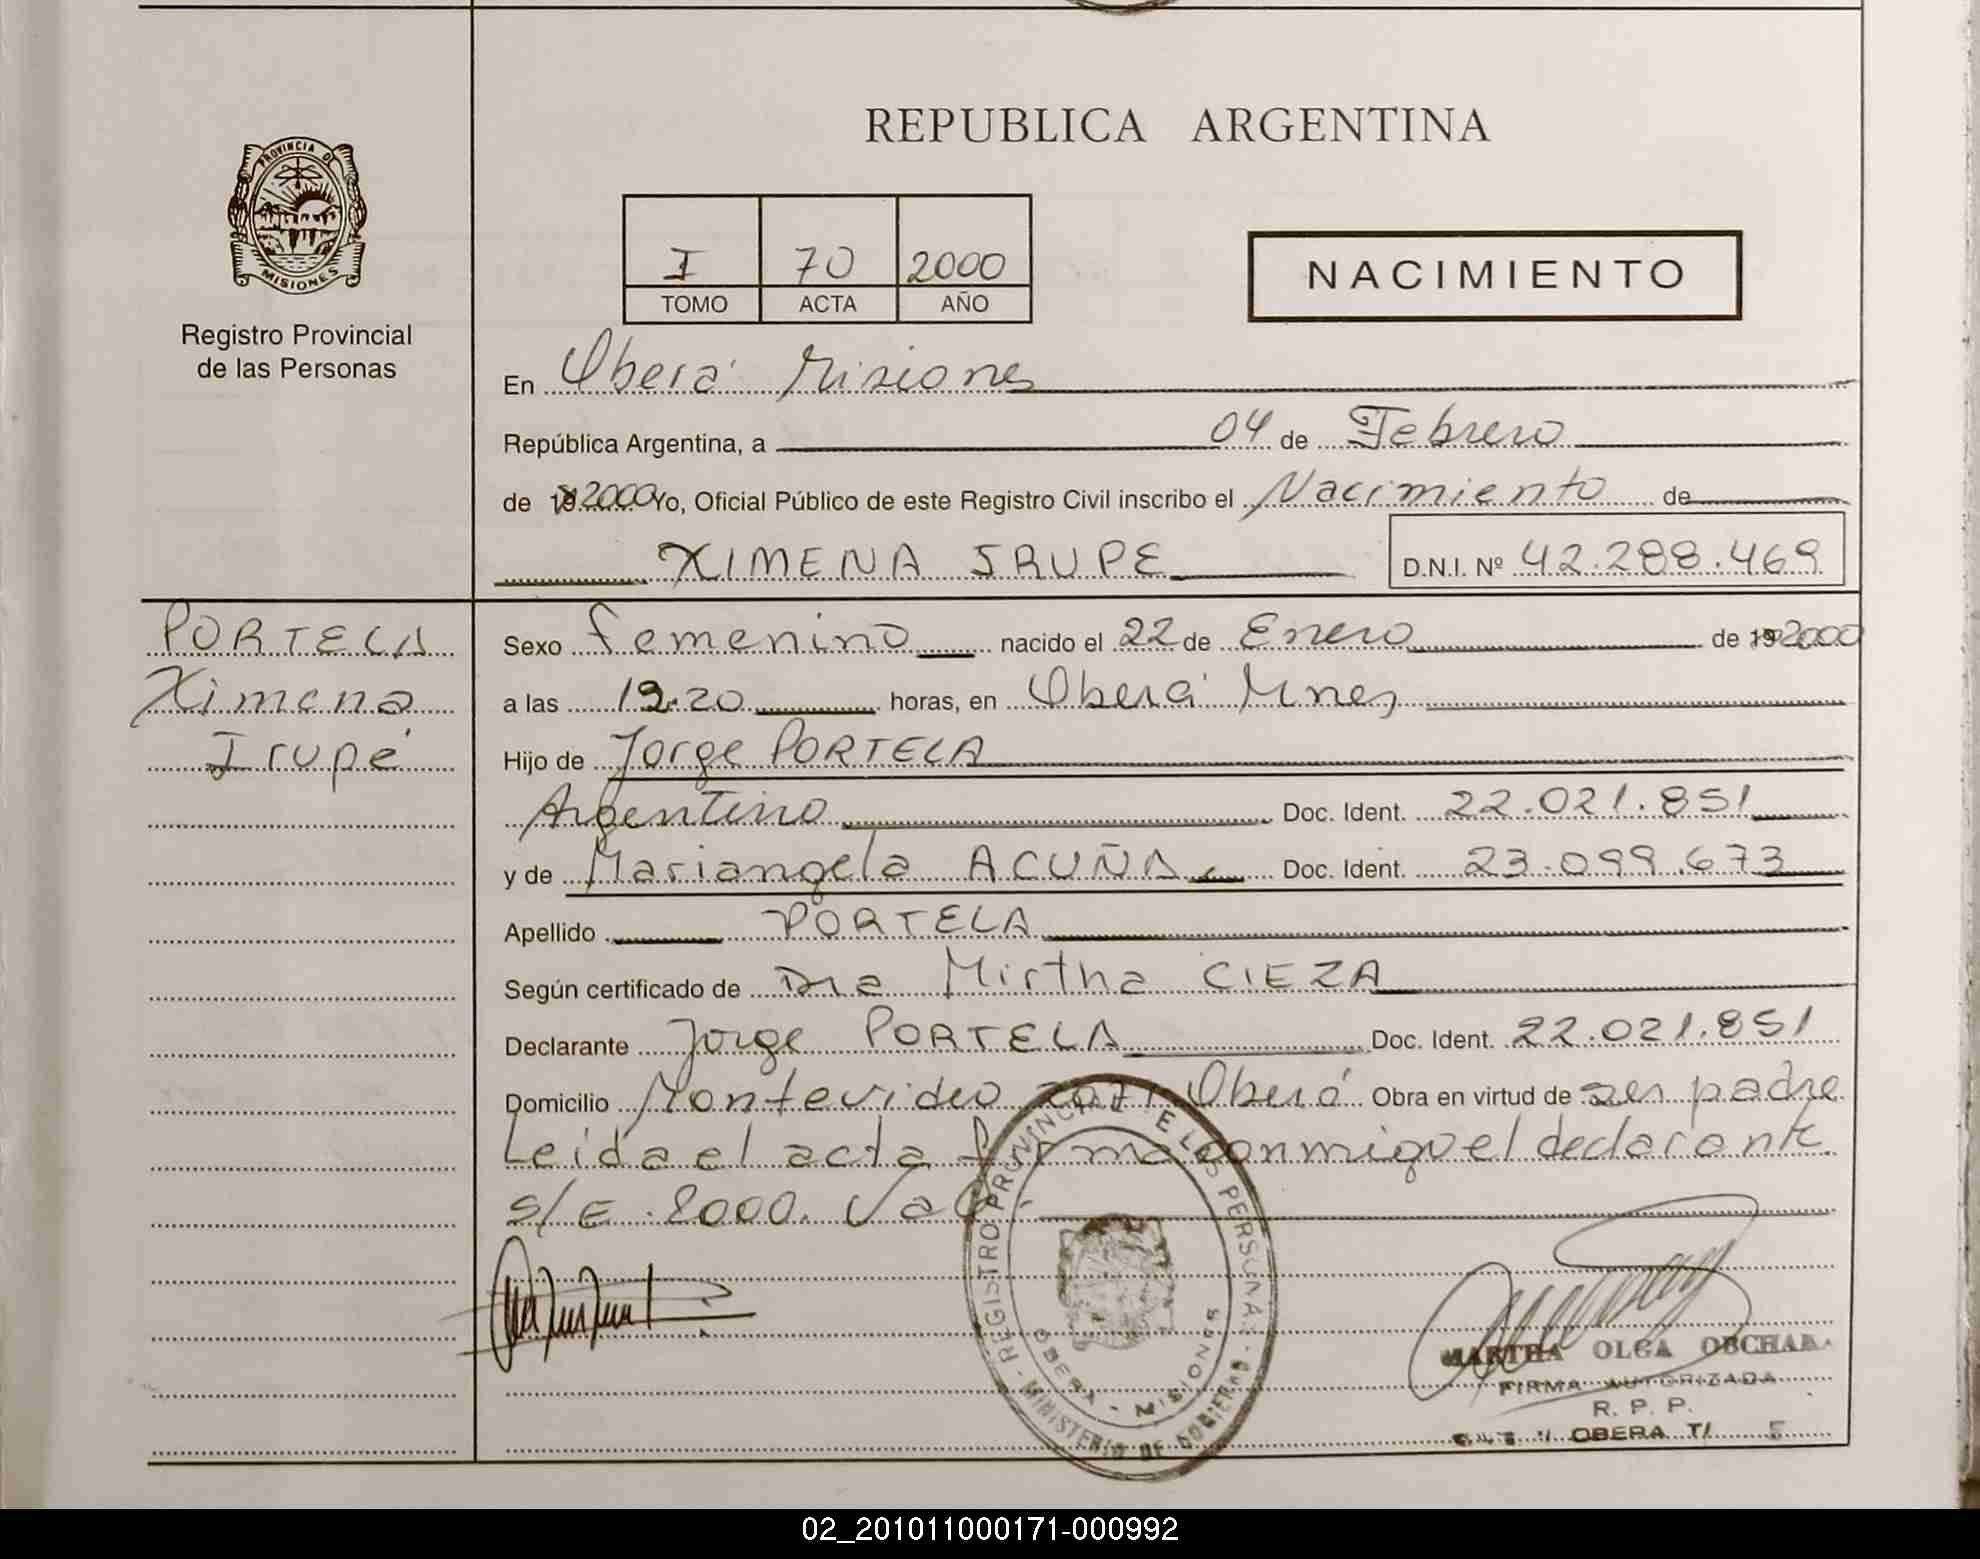 REPUBLICA ARGENTINA
PROVINCIA DE
MISIONES
Registro Provincial
de las Personas
I 70 2000
TOMO ACTA AÑO
NACIMIENTO
En Oberá Misiones
República Argentina, a 04 de Febrero
de 19 2000 Yo, Oficial Público de este Registro Civil inscribo el Nacimiento de
XIMENA IRUPE D.N.I. Nº 42.288.469
PORTELA
Ximena
Irupé
Sexo femenino nacido el 22 de Enero de 19 2000
a las 19.20 horas, en Oberá Mnes
Hijo de Jorge PORTELA
Argentino Doc. Ident. 22.021.851
y de Mariangela ACUÑA Doc. Ident. 23.099.673
Apellido PORTELA
Según certificado de Dra Mirtha CIEZA
Declarante Jorge PORTELA Doc. Ident. 22.021.851
Domicilio Montevideo Oberá Obra en virtud de ser padre
Leida el acta firma conmigo el declarante.
S/E. 2000. Vale
REGISTRO PROVINCIAL DE LAS PERSONAS - MINISTERIO DE GOBIERNO -
OBERA - MISIONES
MARTHA OLGA
FIRMA AUTORIZADA
R. P. P.
OBERA
02_201011000171-000992